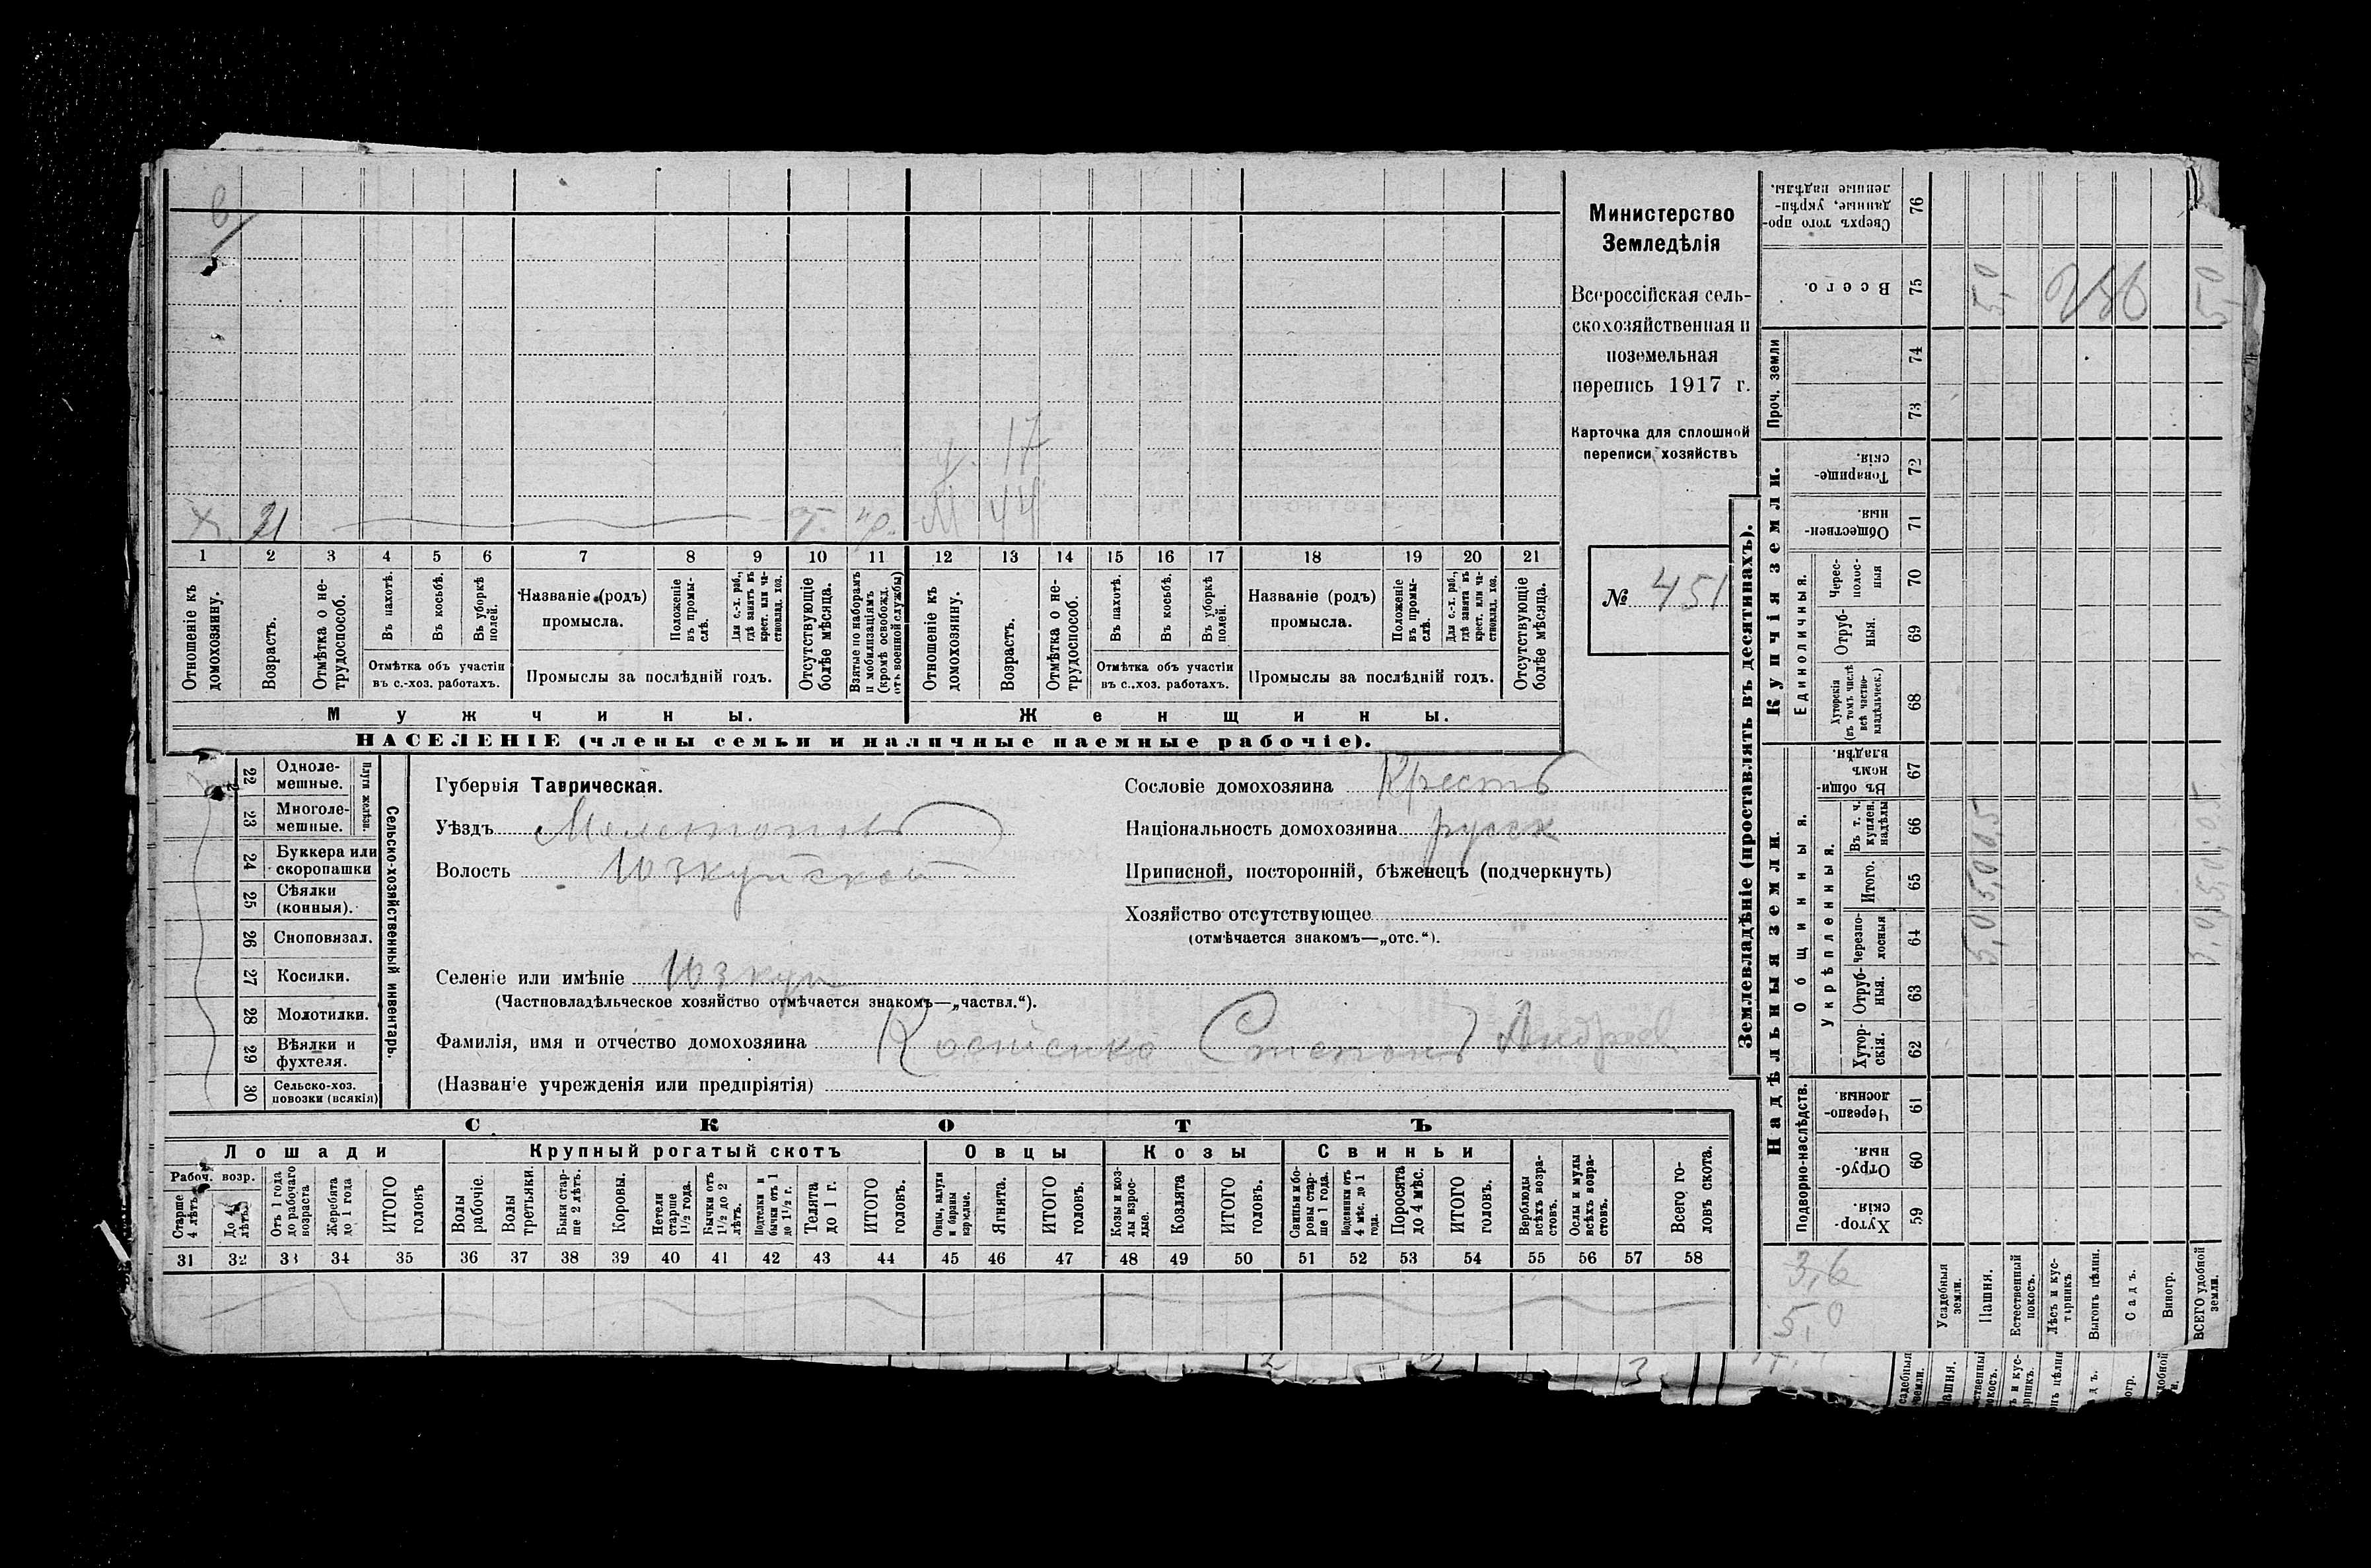 Министерство
Земледѣлія
Всероссійская сель-
скохозяйственная и
поземельная
перепись 1917 г.
Карточка для сплошной
переписи хозяйствъ
№ 451
х. 21
д. 17
М 44
1 2 3 4 5 6 7 8 9 10 11 12 13 14 15 16 17 18 19 20 21
Отношеніе къ домохозяину.
Возрастъ.
Отмѣтка о не-трудоспособ.
Въ пахотѣ.
Въ косьбѣ.
Въ уборкѣ полей.
Отмѣтка объ участіи въ с.-хоз. работахъ.
Названіе (родъ) промысла.
Положеніе въ промы-слѣ.
Для с.-х. раб., гдѣ занятъ въ крест. или ча-стновлад. хоз.
Промыслы за послѣдній годъ.
Отсутствующіе болѣе мѣсяца.
Взятые по наборамъ и мобилизаціямъ (кромѣ освобожд. отъ военной службы)
Отношеніе къ домохозяину.
Возрастъ.
Отмѣтка о не-трудоспособ.
Въ пахотѣ.
Въ косьбѣ.
Въ уборкѣ полей.
Отмѣтка объ участіи въ с.-хоз. работахъ.
Названіе (родъ) промысла.
Положеніе въ промы-слѣ.
Для с.-х. раб., гдѣ занята въ крест. или ча-стновлад. хоз.
Промыслы за послѣдній годъ.
Отсутствующіе болѣе мѣсяца.
Мужчины. Женщины.
НАСЕЛЕНІЕ (члены семьи и наличные наемные рабочіе).
22 Одноле-мешные.
23 Многоле-мешные.
Плуги желѣзн.
24 Буккера или скоропашки
25 Сѣялки (конныя).
26 Сноповязал.
27 Косилки.
28 Молотилки.
29 Вѣялки и фухтеля.
30 Сельско-хоз. повозки (всякія)
Сельско-хозяйственный инвентарь.
Губернія Таврическая.
Уѣздъ Мелитопольс
Волость Юзкуйской
Селеніе или имѣніе Юзкуи
(Частновладѣльческое хозяйство отмѣчается знакомъ—„частвл.“).
Фамилія, имя и отчество домохозяина Костенко Степанъ Андреев
(Названіе учрежденія или предпріятія)
Сословіе домохозяина Крестъ
Національность домохозяина русск
Приписной, посторонній, бѣженецъ (подчеркнуть)
Хозяйство отсутствующее
(отмѣчается знакомъ—„отс.“).
СКОТЪ
Лошади Крупный рогатый скотъ Овцы Козы Свиньи
Рабоч. возр.
Старше 4 лѣтъ.
До 4 лѣтъ.
Отъ 1 года до рабочаго возраста
Жеребята до 1 года
ИТОГО головъ
Волы рабочіе.
Волы третьяки.
Быки стар-ше 2 лѣтъ.
Коровы.
Нетели старше 1½ года.
Бычки отъ 1½ до 2 лѣтъ.
Подтелки и бычки отъ 1 до 1½ г.
Телята до 1 г.
ИТОГО головъ.
Овцы, валухи и бараны взрослые.
Ягнята.
ИТОГО головъ.
Козы и коз-лы взрос-лые.
Козлята
ИТОГО головъ.
Свиньи и бо-ровы стар-ше 1 года.
Подсвинки отъ 4 мѣс. до 1 года.
Поросята до 4 мѣс.
ИТОГО головъ.
Верблюды всѣхъ возра-стовъ.
Ослы и мулы всѣхъ возра-стовъ.
Всего го-ловъ скота.
31 32 33 34 35 36 37 38 39 40 41 42 43 44 45 46 47 48 49 50 51 52 53 54 55 56 57 58
Землевладѣніе (проставлять въ десятинахъ).
Надѣльныя земли. Купчія земли.
Проч. земли
Подворно-наслѣдств.
Общинныя.
Укрѣпленныя.
Единоличныя.
Сверхъ того про-данные, укрѣп-ленные надѣлы. 76
Всего. 75
74
73
Товарище-скія. 72
Обществен-ныя. 71
Черес-полос-ныя 70
Отруб-ныя. 69
Хуторскія (въ томъ числѣ всѣ частно-владѣльческ.) 68
Въ общин-номъ владѣн. 67
Въ т. ч. куплен. надѣлы 66
Итого. 65
Черезпо-лосныя 64
Отруб-ныя. 63
Хутор-скія. 62
Черезпо-лосныя. 61
Отруб-ныя. 60
Хутор-скія. 59
5,0
5,0
3,6
5,0
Усадебныя земли.
Пашня.
Естественный покосъ.
Лѣсъ и кус-тарникъ
Выгонъ цѣлин.
Садъ.
Виногр.
ВСЕГО удобной земли.